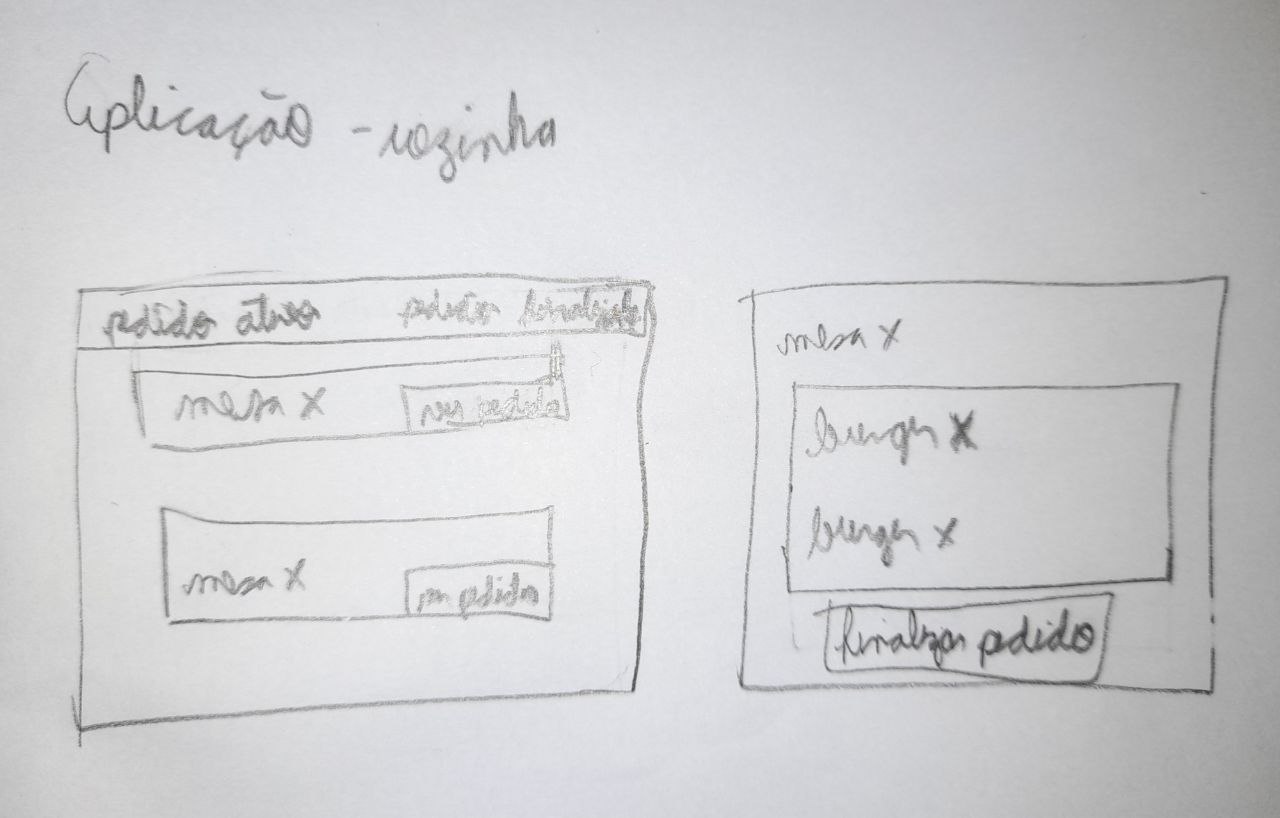 Aplicação - cozinha
pedido ativo
pedidos finalizado
mesa X
ver pedido
mesa X
ver pedido
mesa X
burger X
burger X
finalizar pedido